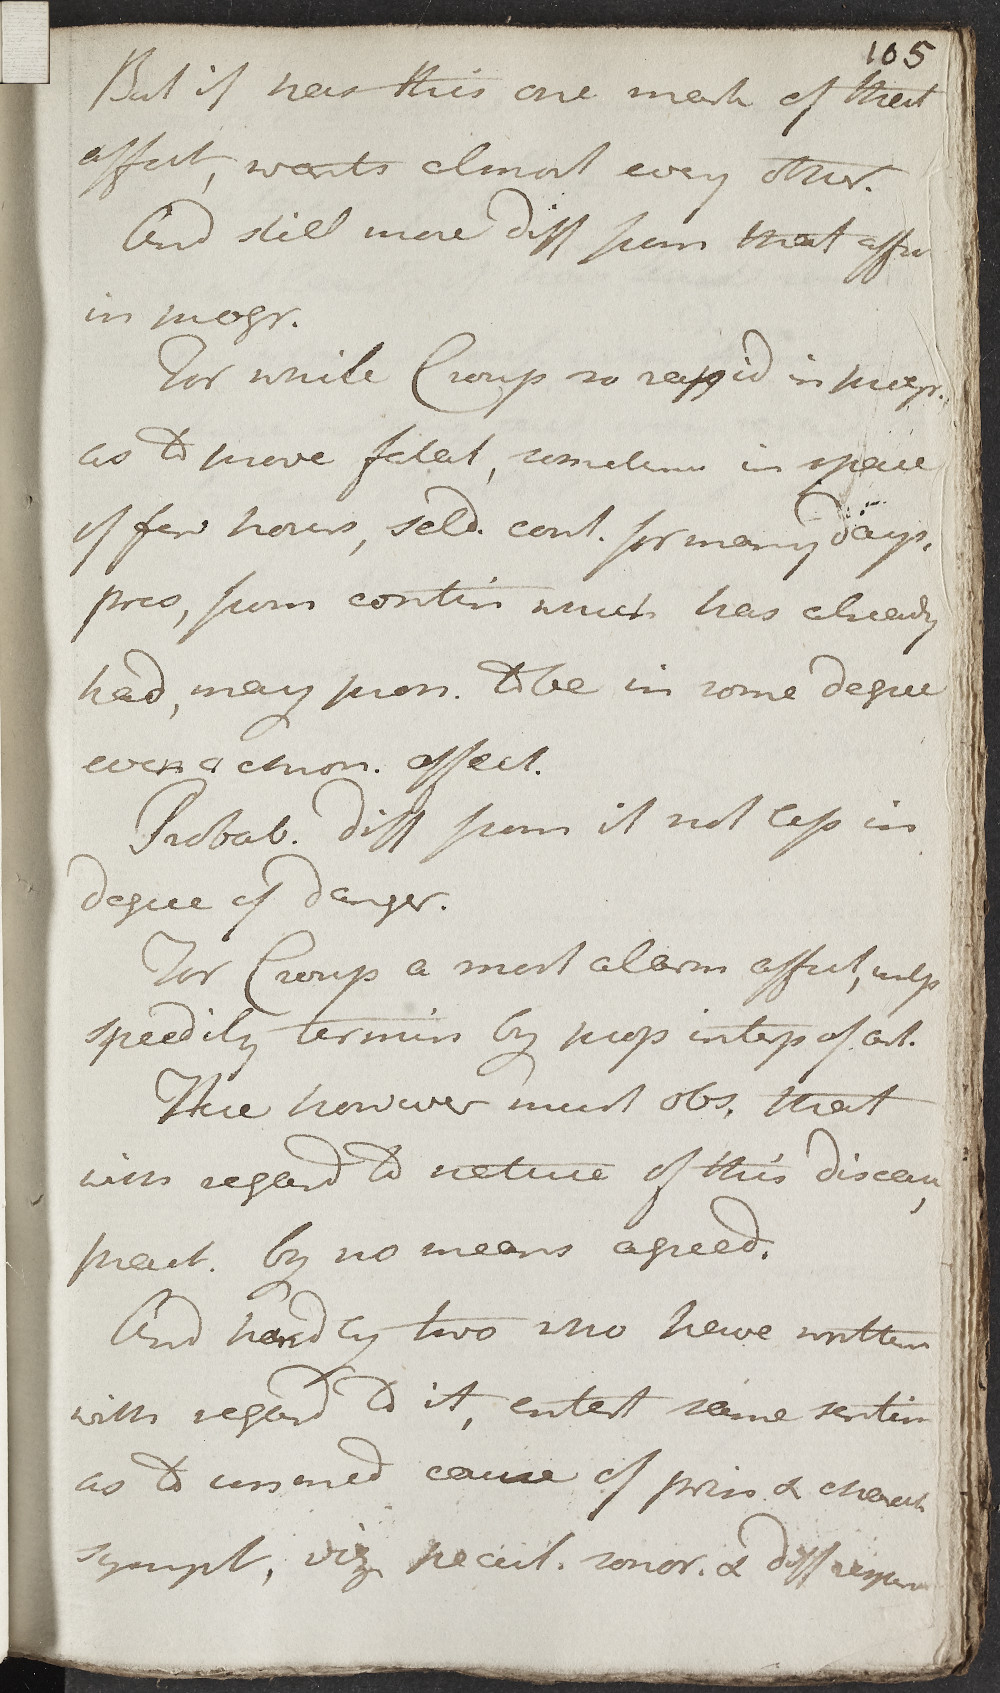 105
But if has this one mark of that
affect, wants almost every other.
And still more diff from that affec
in progr.
For while Croup so rapid in progr.
as to prove fatal, sometimes in space
of few hours, seld. cont. for many days,
pres, from contin which has already
had, may pron. to be in some degree
even a chron. affect.
Probab. diff from it not less in
degree of danger.
For Croup a most alarm affect, unless
speedily termin by prop interp of art.
Here however must obs. that
with regard to nature of this disease,
pract. by no means agreed.
And hardly two who have written
with regard to it, entert same sentim
as to immed cause of prin & charact
sympt, viz pecul. sonor. & diff respir